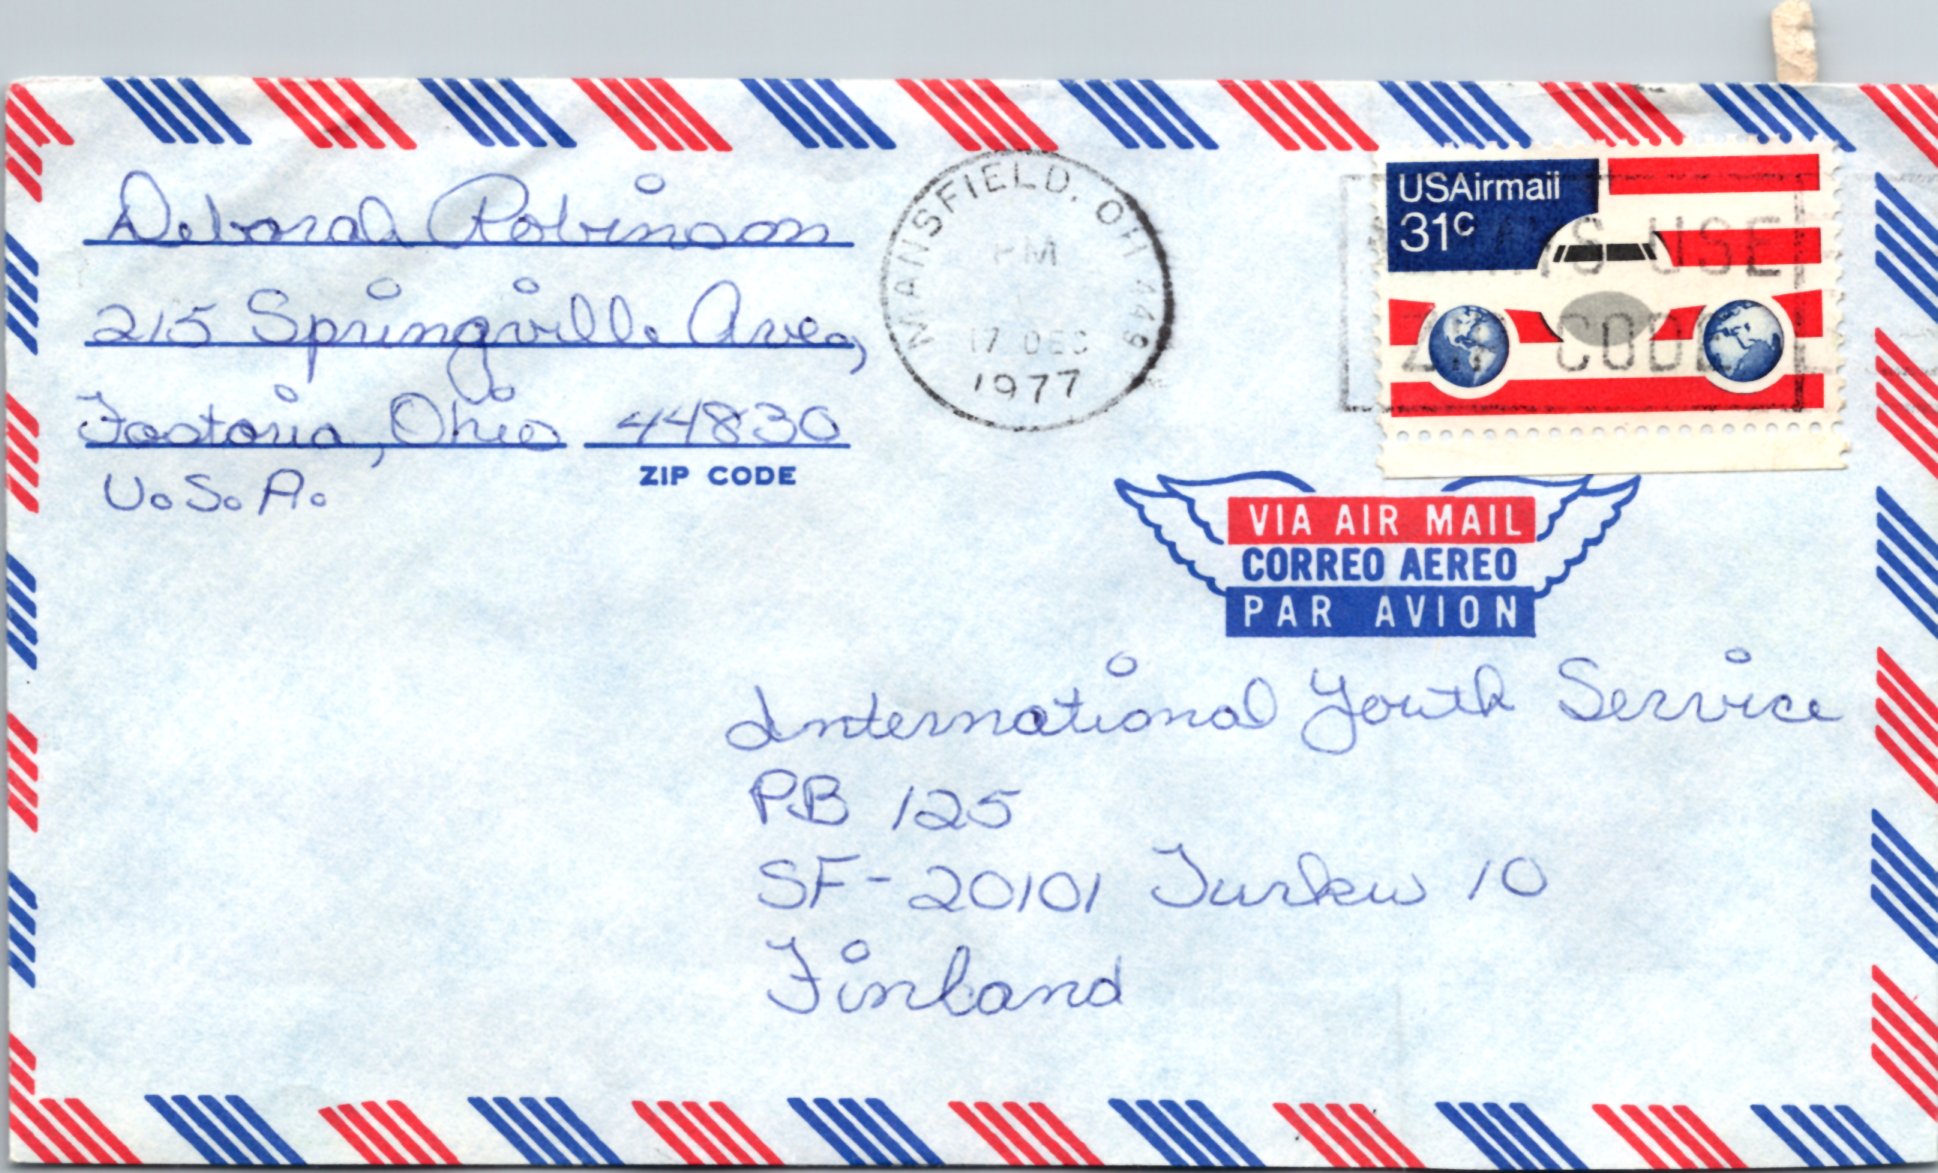 Deborah Robinson
215 Springville Ave.,
Fostoria, Ohio 44830
ZIP CODE
U.S.A.
MANSFIELD, OH 449
PM
17 DEC
1977
USAirmail
31c
ALWAYS USE
ZIP CODE
VIA AIR MAIL
CORREO AEREO
PAR AVION
International Youth Service
P.B 125
SF-20101 Turku 10
Finland